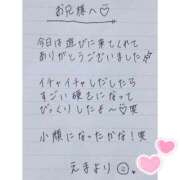 お兄様へ♡
今日は遊びに来てくれて
ありがとうございました
イチャイチャしだしたら
すごい硬さになって
びっくりしたよ〜笑
小顔になったかな!笑
えまより